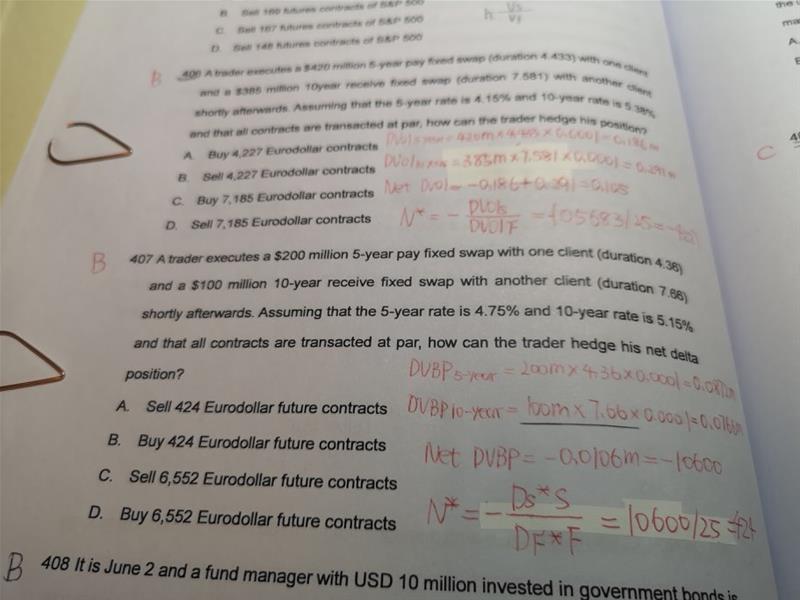 B. Sell 160 futures contracts of S&P 500
C. Sell 167 futures contracts of S&P 500
D. Sell 148 futures contracts of S&P 500
h Vs
Vf
B
406 A trader executes a $420 million 5-year pay fixed swap (duration 4.433) with one client
and a $385 million 10year receive fixed swap (duration 7.581) with another client
shortly afterwards. Assuming that the 5-year rate is 4.15% and 10-year rate is 5.38%
and that all contracts are transacted at par, how can the trader hedge his position?
A. Buy 4,227 Eurodollar contracts
B. Sell 4,227 Eurodollar contracts
C. Buy 7,185 Eurodollar contracts
D. Sell 7,185 Eurodollar contracts
= 420m × 4.433 × 0.0001 = 0.186m
= 385m × 7.581 × 0.0001 = 0.291m
Net DV01 = -0.186 + 0.291 = 0.105
N* = - DV01s / DV01F = -105683/25 =
C
B
407 A trader executes a $200 million 5-year pay fixed swap with one client (duration 4.36)
and a $100 million 10-year receive fixed swap with another client (duration 7.66)
shortly afterwards. Assuming that the 5-year rate is 4.75% and 10-year rate is 5.15%
and that all contracts are transacted at par, how can the trader hedge his net delta
position?
DVBP 5-year = 200m × 4.36 × 0.0001 = 0.0872m
A. Sell 424 Eurodollar future contracts
DVBP 10-year = 100m × 7.66 × 0.0001 = 0.0766m
B. Buy 424 Eurodollar future contracts
Net DVBP = -0.0106m = -10600
C. Sell 6,552 Eurodollar future contracts
D. Buy 6,552 Eurodollar future contracts
N* = - Ds*S / DF*F = 10600/25 = 424
B
408 It is June 2 and a fund manager with USD 10 million invested in government bonds is